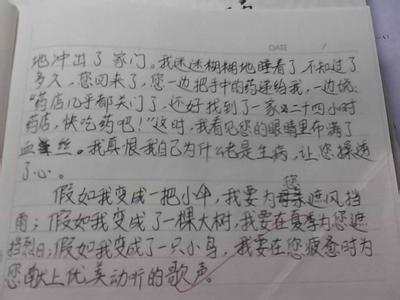 DATE
地冲出了家门。我迷迷糊糊地睡着了不知过了
多久，您回来了，您一边把手中的药递给我，一边说：
“药店几乎都关门了，还好找到了一家二十四小时
药店，快吃药吧！”这时，我看见您的眼睛里布满了
血丝。我真恨我自己为什么老是生病，让您操透
了心。
假如我变成一把小伞，我要为您遮风挡
雨；假如我变成了一棵大树，我要在夏季为您遮
挡烈日；假如我变成了一只小鸟，我要在您疲惫时为
您献上优美动听的歌声。